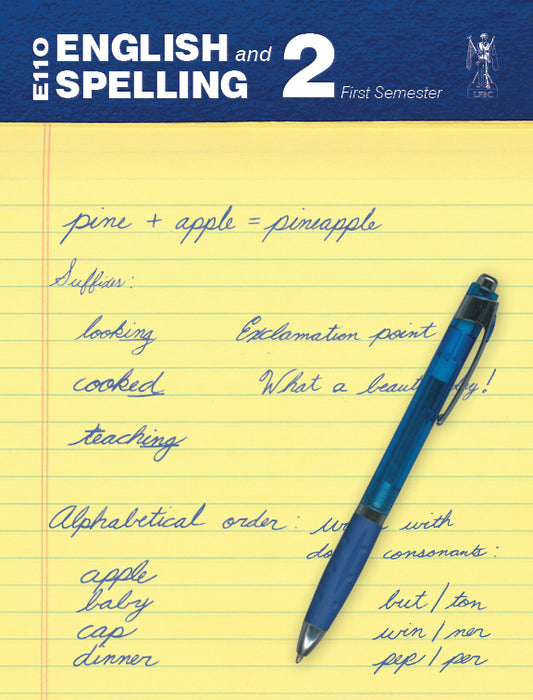 E110
ENGLISH and
SPELLING
2
First Semester
LFBC
pine + apple = pineapple
Suffixes:
looking
Exclamation point
cooked
What a !
teaching
Alphabetical order:
with
consonants:
apple
baby
but/ton
cap
win/ner
dinner
pep/per